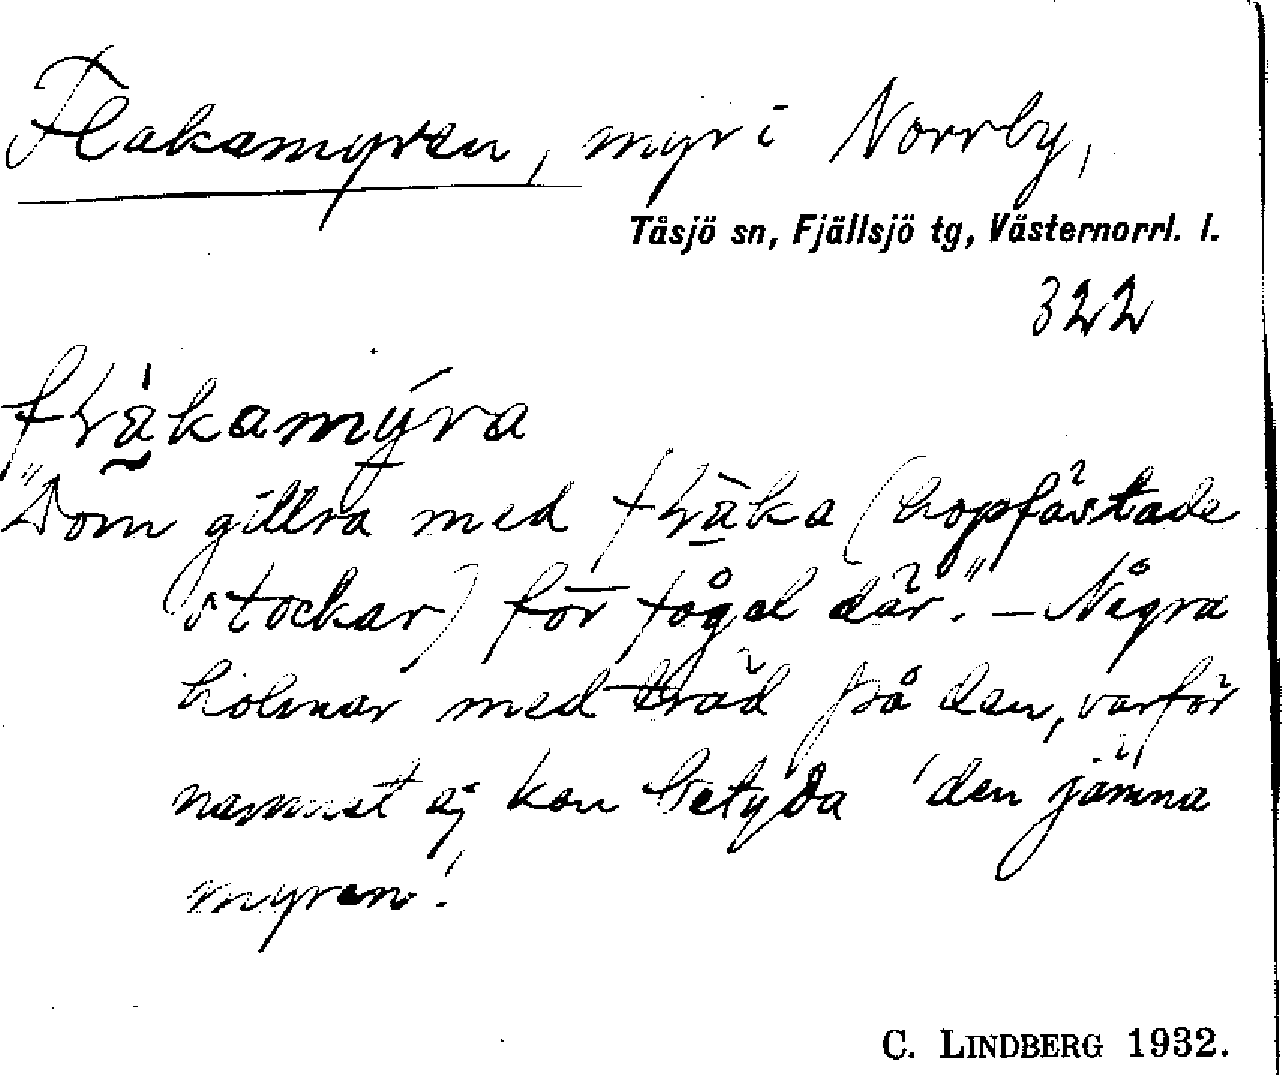 Flakamyren, myr i Norrby,
Tåsjö sn, Fjällsjö tg, Västernorrl. l.
322
fläkamýra
"Dom gillra med fläka (hopfästade
stockar) för fågel där." – Några
holmar med träd på den, varför
namnet ej kan betyda 'den jämna
myren'.
C. LINDBERG 1932.